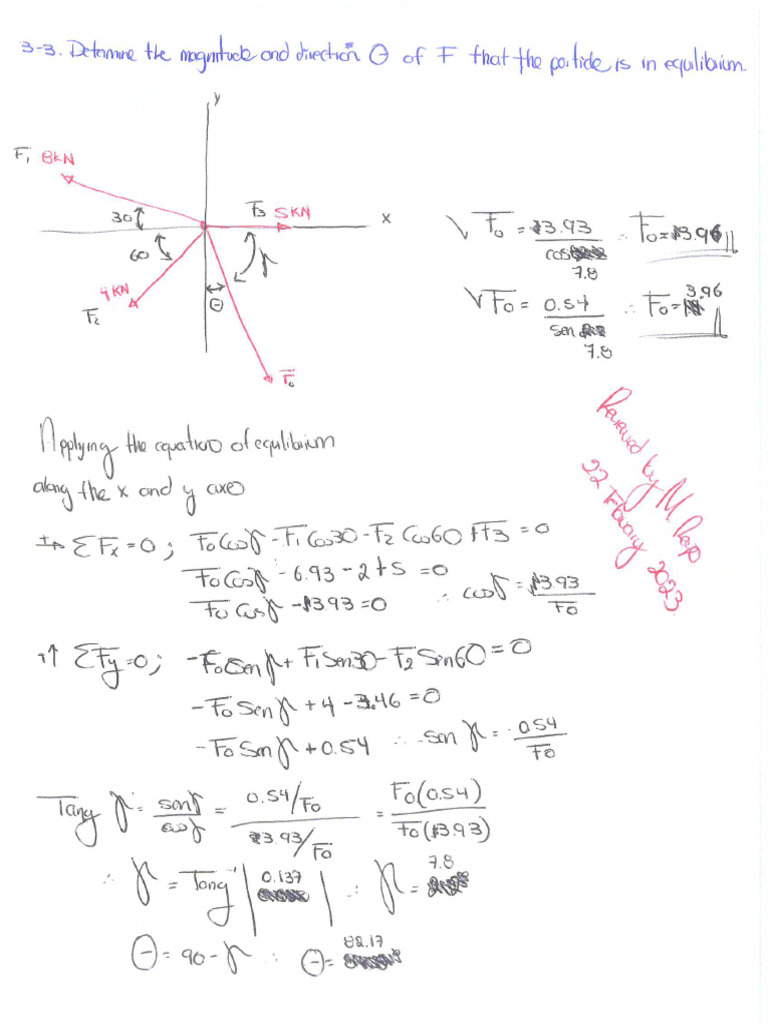 3-3. Determine the magnitude and direction θ of F that the particle is in equilibrium.
y
F₁ 8KN
30
F₃ 5KN
x
60
γ
4KN
F₂
θ
F₀
√ F₀ = 3.93 / cos 7.8 ∴ F₀ = 3.96
√ F₀ = 0.54 / sen 7.8 ∴ F₀ = 3.96
Reviewed by M.
22 February 2023
Applying the equations of equilibrium
along the x and y axes
ΣFx = 0 ; F₀ Cos γ - F₁ Cos 30 - F₂ Cos 60 + F3 = 0
F₀ Cos γ - 6.93 - 2 + 5 = 0
F₀ Cos γ - 3.93 = 0 ∴ cos γ = 3.93 / F₀
ΣFy = 0 ; -F₀ Sen γ + F₁ Sen 30 - F₂ Sin 60 = 0
-F₀ Sen γ + 4 - 3.46 = 0
-F₀ Sen γ + 0.54 ∴ sen γ = 0.54 / F₀
Tang γ = sen γ / cos γ = 0.54/F₀ / 3.93/F₀ = F₀(0.54) / F₀(3.93)
∴ γ = Tang⁻¹ | 0.137 | ∴ γ = 7.8
θ = 90 - γ ∴ θ = 82.17